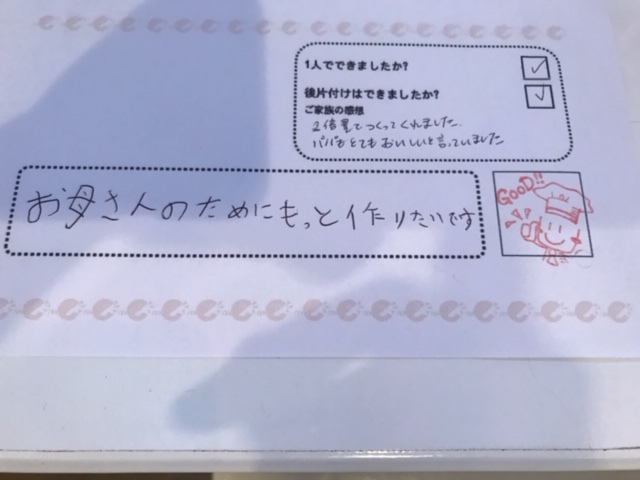 1人でできましたか?
後片付けはできましたか?
ご家族の感想
2倍量でつくってくれました。
パパもとてもおいしいと言っていました
お母さんのためにもっと作りたいです
GOOD!!